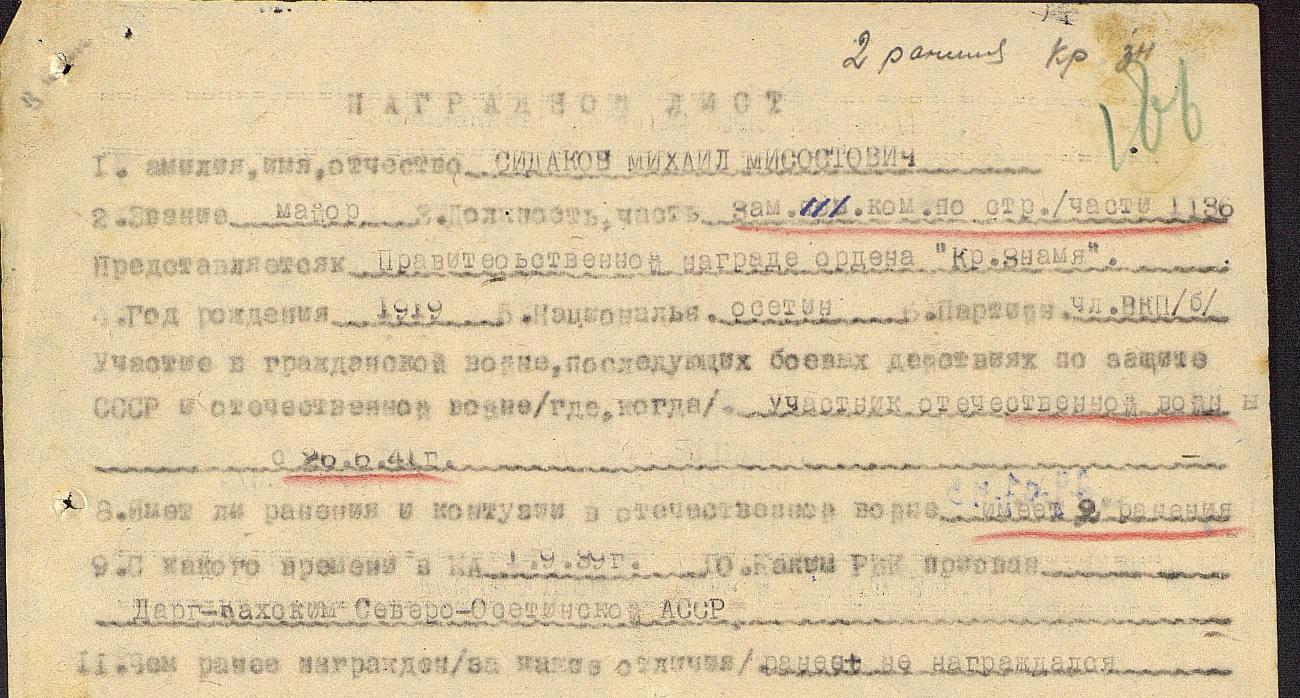 2 ранения Кр Зн
166
НАГРАДНОЙ ЛИСТ
1. амилия,имя,отчество СИДАКОВ МИХАИЛ МИСОСТОВИЧ
2.Звание майор 3.Должность,часть Зам. ком.по стр./части 1136
Представляетсяк Правитеоьственной награде ордена "Кр.Знамя".
4.Год рождения 1919 5.Националья. осетин 6.Партийн.чл.ВКП/б/
Участие в гражданской войне,последующих боевых действиях по защите
СССР и отечественной войне/где,когда/. участник отечественной войн ы
с 26.6.41г.
8.Имет ли ранения и контузии в отечественной войне имеет 2 ранения
9.С какого времени в КА 1.9.39г. 10.Каким РВК призван
Дарг-Кахским Северо-Осетинской АССР
11.Чем ранее награжден/за какие отличия/ ранее не награждался